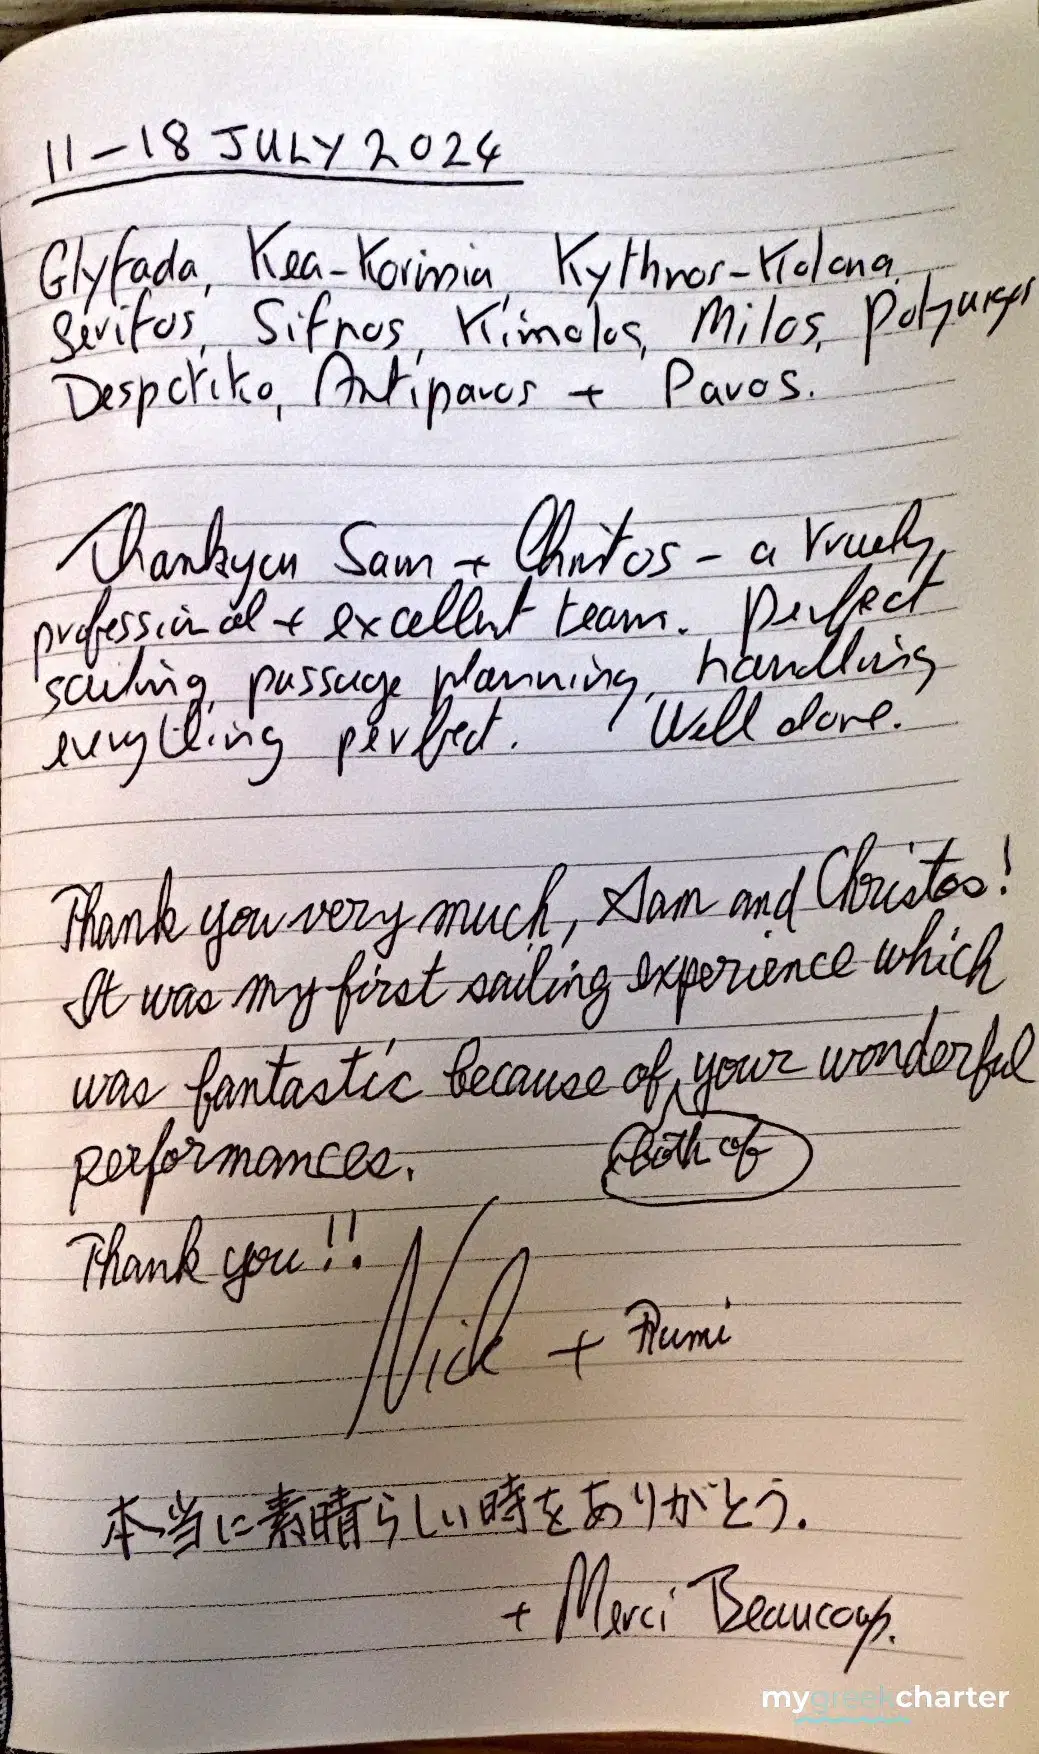 11-18 JULY 2024
Glyfada, Kea-Korissia, Kythnos-Kolona,
Serifos, Sifnos, Kimolos, Milos, Polyaigos
Despotiko, Antiparos + Paros.
Thankyou Sam + Christos - a truely
professional + excellent team. Perfect
sailing, passage planning, handling
everything perfect. Well done.
Thank you very much, Sam and Christos!
It was my first sailing experience which
was fantastic because of your wonderful
both of
performances.
Thank you!!
Nick + Rumi
本当に素晴らしい時をありがとう.
+ Merci Beaucoup.
mygreekcharter